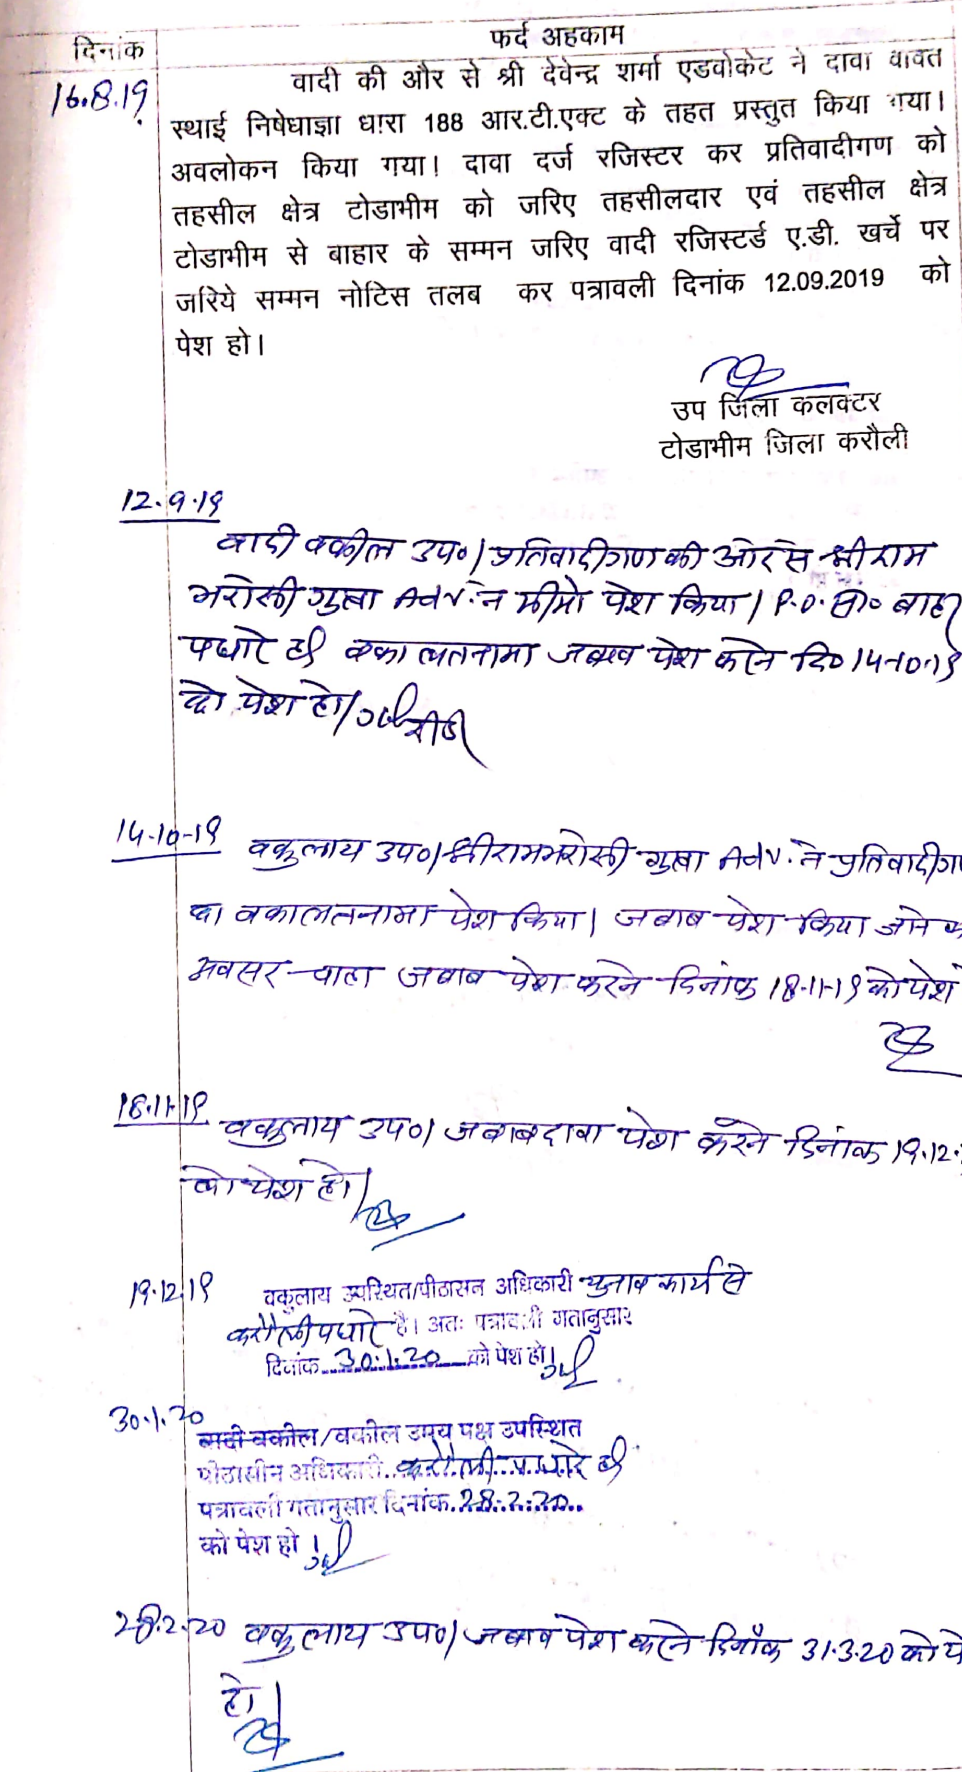 दिनांक
फर्द अहकाम
16.8.19
वादी की और से श्री देवेन्द्र शर्मा एडवोकेट ने दावा वावत
स्थाई निषेधाज्ञा धारा 188 आर.टी.एक्ट के तहत प्रस्तुत किया गया।
अवलोकन किया गया। दावा दर्ज रजिस्टर कर प्रतिवादीगण को
तहसील क्षेत्र टोडाभीम को जरिए तहसीलदार एवं तहसील क्षेत्र
टोडाभीम से बाहार के सम्मन जरिए वादी रजिस्टर्ड ए.डी. खर्चे पर
जरिये सम्मन नोटिस तलब कर पत्रावली दिनांक 12.09.2019 को
पेश हो।
उप जिला कलक्टर
टोडाभीम जिला करौली
12.9.19
वादी वकील उप०/ प्रतिवादीगण की ओर से श्री राम
भरोसी गुप्ता Adv. ने मीमो पेश किया। P.O. सा० बाहर
पधारे है वकालतनामा जवाब पेश करने दि० 14-10-19
को पेश हो।
14-10-19
वकुलाय उप०/ श्री रामभरोसी गुप्ता Adv. ने प्रतिवादीगण
का वकालतनामा पेश किया। जबाब पेश किया जाने का
अवसर चाहा जबाब पेश करने दिनांक 18-11-19 को पेश
18.11.19
वकुलाय उप०/ जबाब दावा पेश करने दिनांक 19.12.
को पेश हो।
19.12.19
वकुलाय उपस्थित/पीठासन अधिकारी चुनाव कार्य से
करौली पधारे है। अतः पत्रावली गतानुसार
दिनांक 30.1.20 को पेश हो।
30.1.20
वादी वकील/वकील उभय पक्ष उपस्थित
पीठासीन अधिकारी करौली पधारे है
पत्रावली गतानुसार दिनांक 28.2.20
को पेश हो।
28.2.20
वकुलाय उप०/ जबाब पेश करने दिनाँक 31.3.20 को पे
हो।